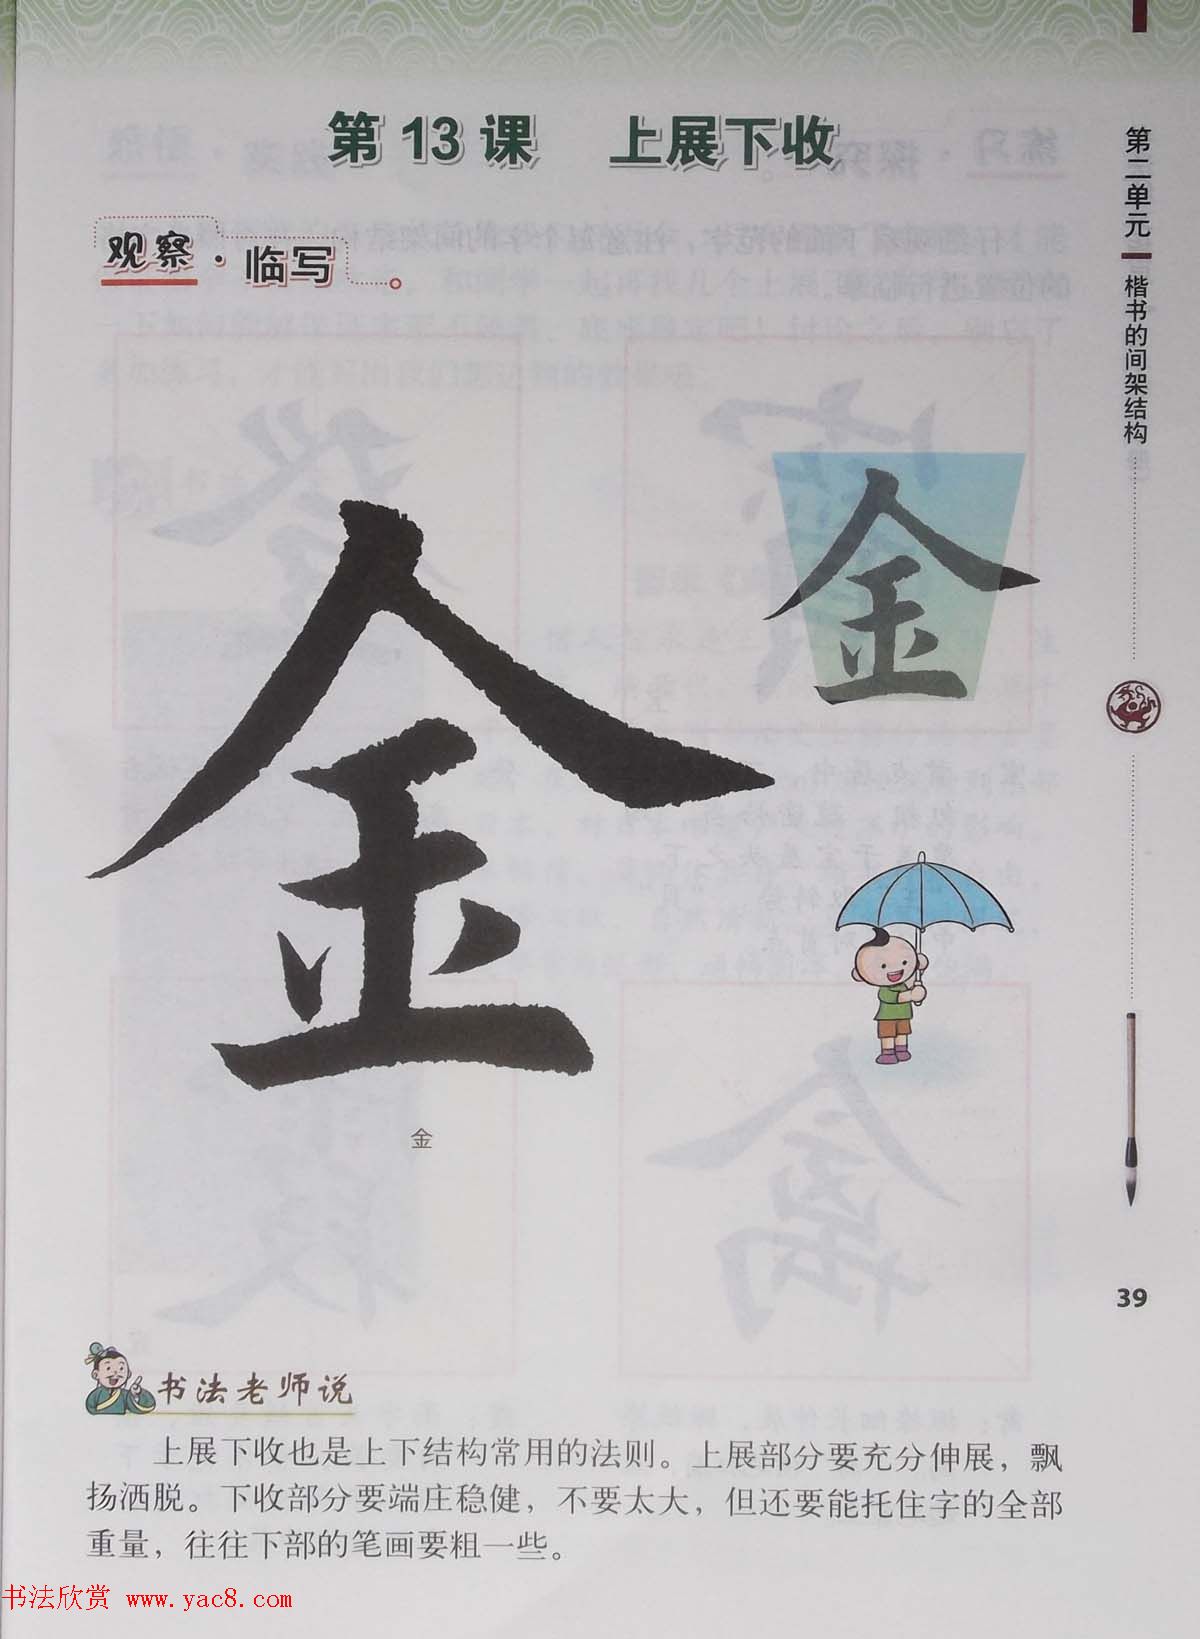 第13课 上展下收
观察·临写
第二单元 楷书的间架结构
金
金
金
39
书法老师说
上展下收也是上下结构常用的法则。上展部分要充分伸展，飘
扬洒脱。下收部分要端庄稳健，不要太大，但还要能托住字的全部
重量，往往下部的笔画要粗一些。
书法欣赏 www.yac8.com